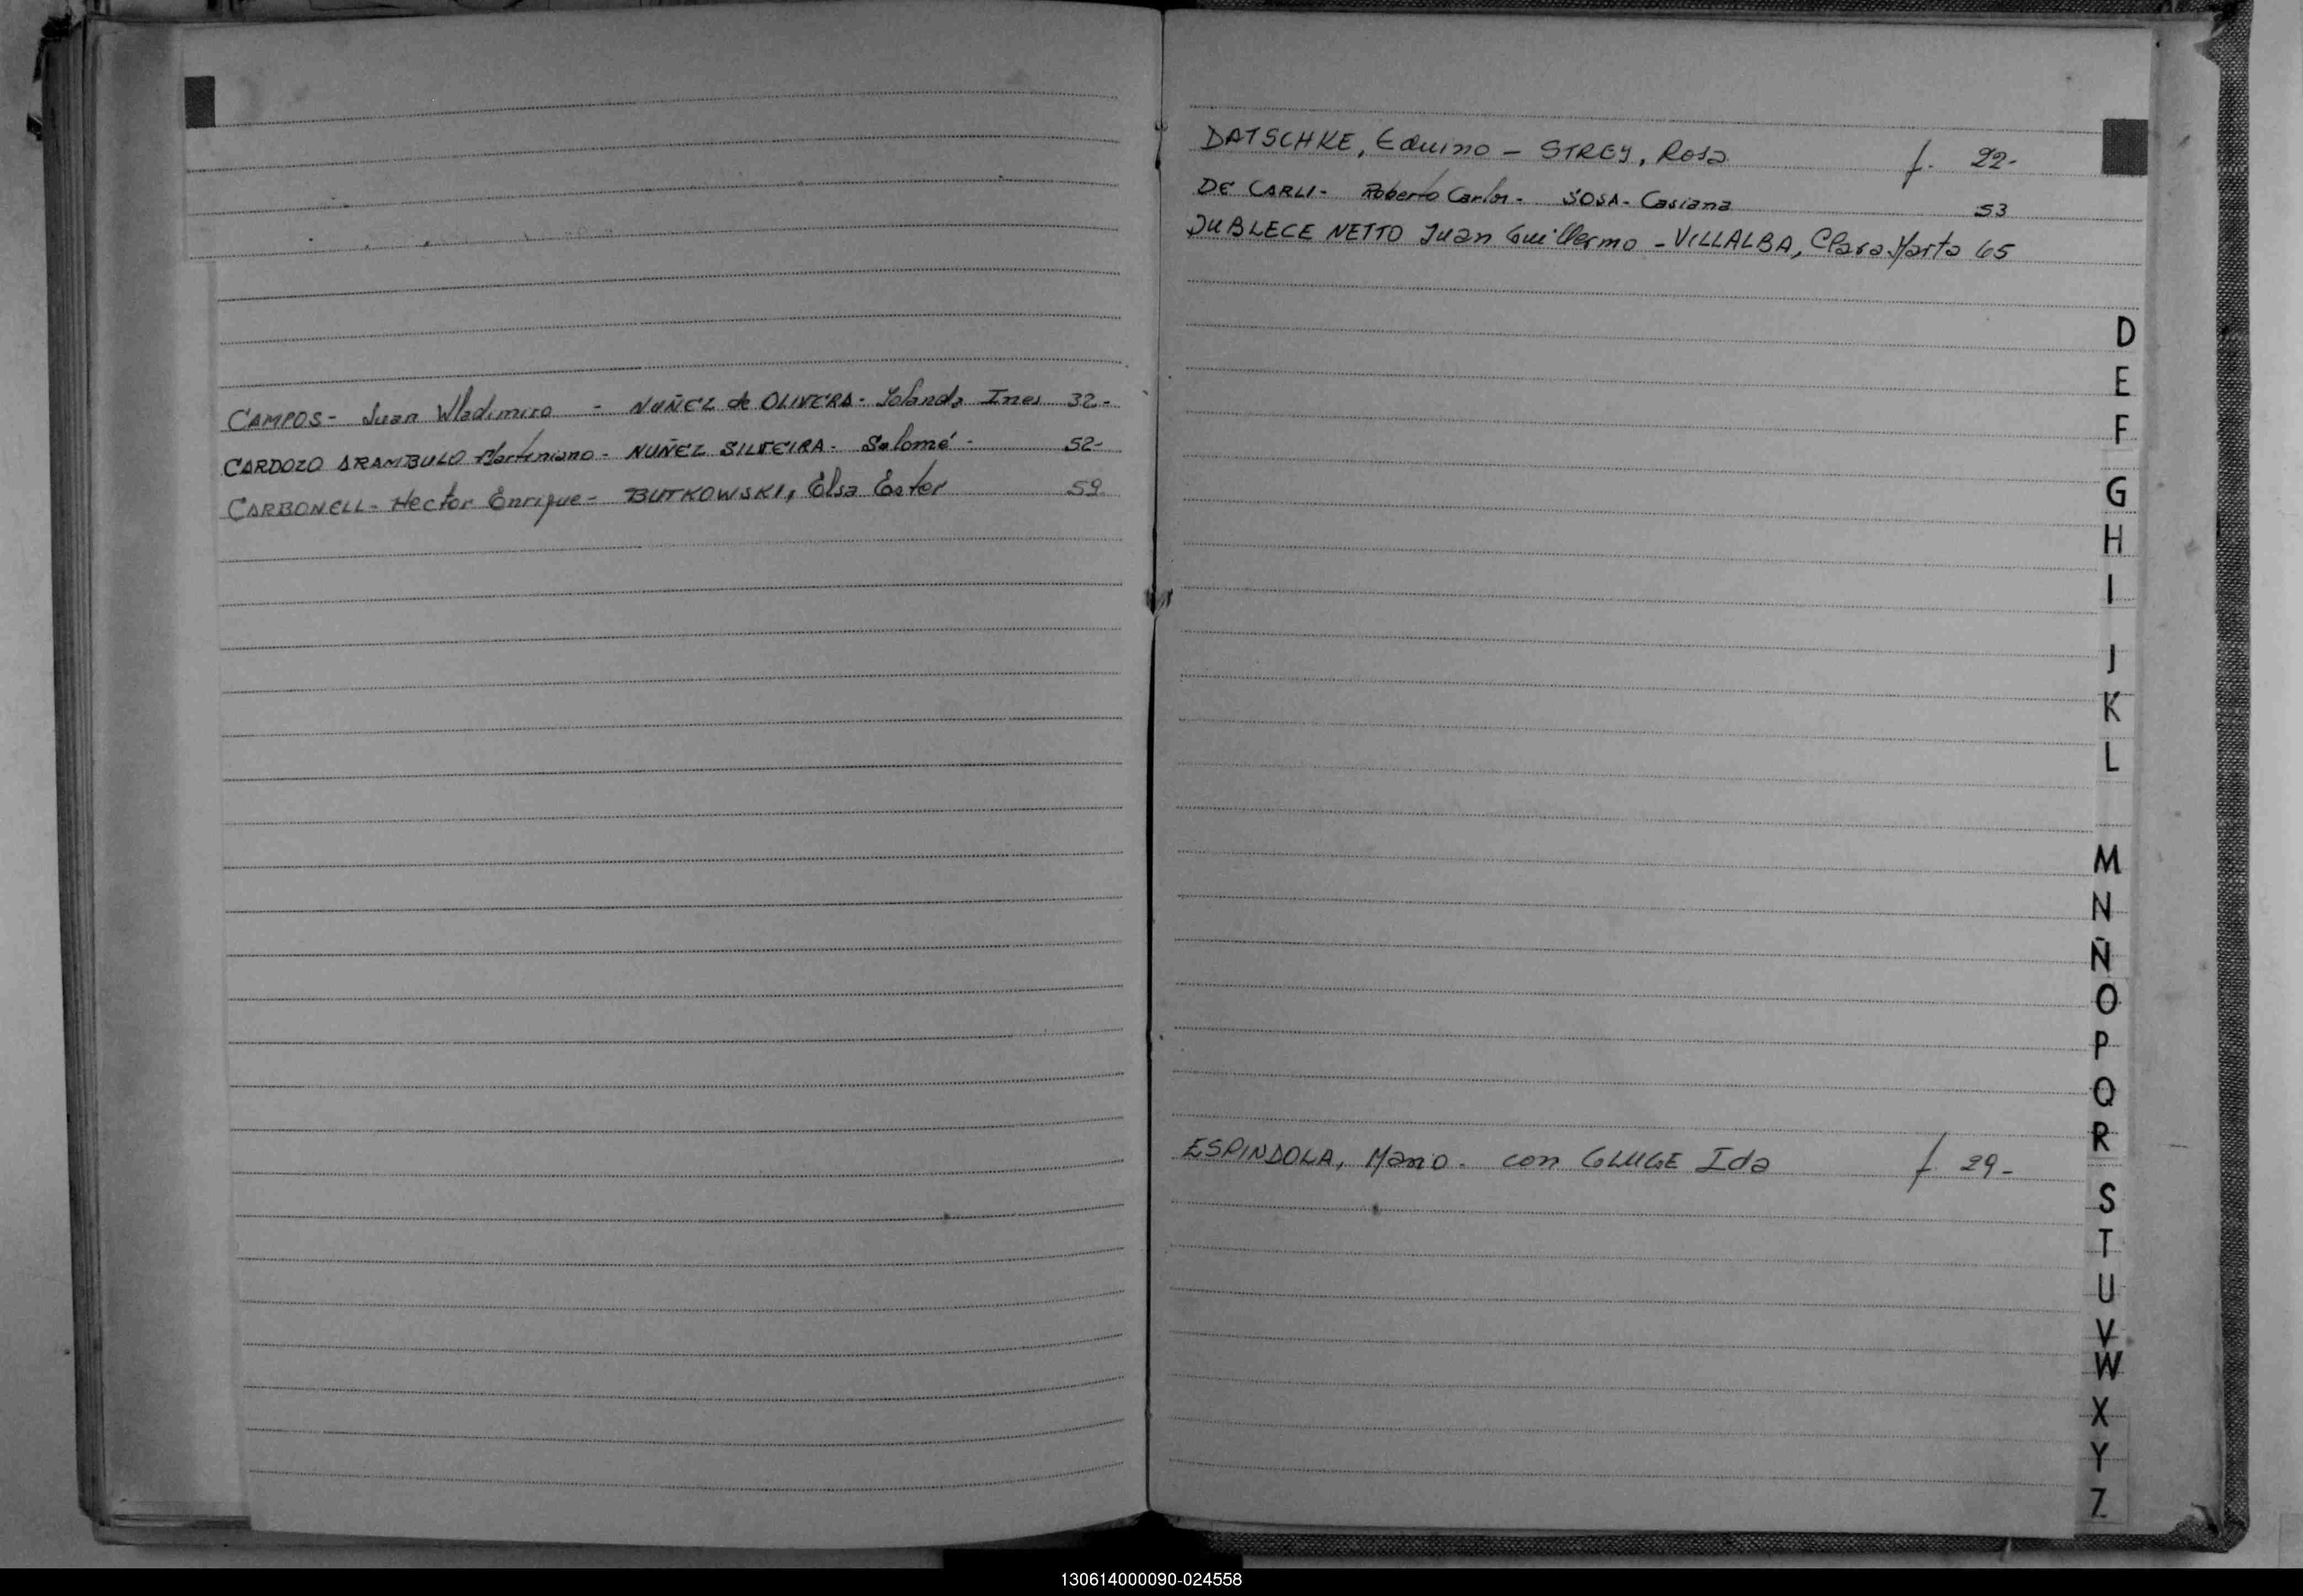 CAMPOS- Juan Wladimiro - NUÑEZ de OLIVERA- Iolanda Ines 32-
CARDOZO ARAMBULO Marteniano- NUÑEZ SILVEIRA- Salomé- 52-
CARBONELL- Hector Enrique- BUTKOWSKI, Elsa Ester 59
DATSCHKE, Eduino - STREY, Rosa f. 22-
DE CARLI- Roberto Carlos- SOSA- Casiana 53
DUBLECE NETTO Juan Guillermo - VILLALBA, Clara Marta 65
D
E
F
G
H
I
J
K
L
M
N
Ñ
O
P
Q
R
ESPINDOLA, Mario. con GLUGE Ida f 29-
S
T
U
V
W
X
Y
Z
130614000090-024558